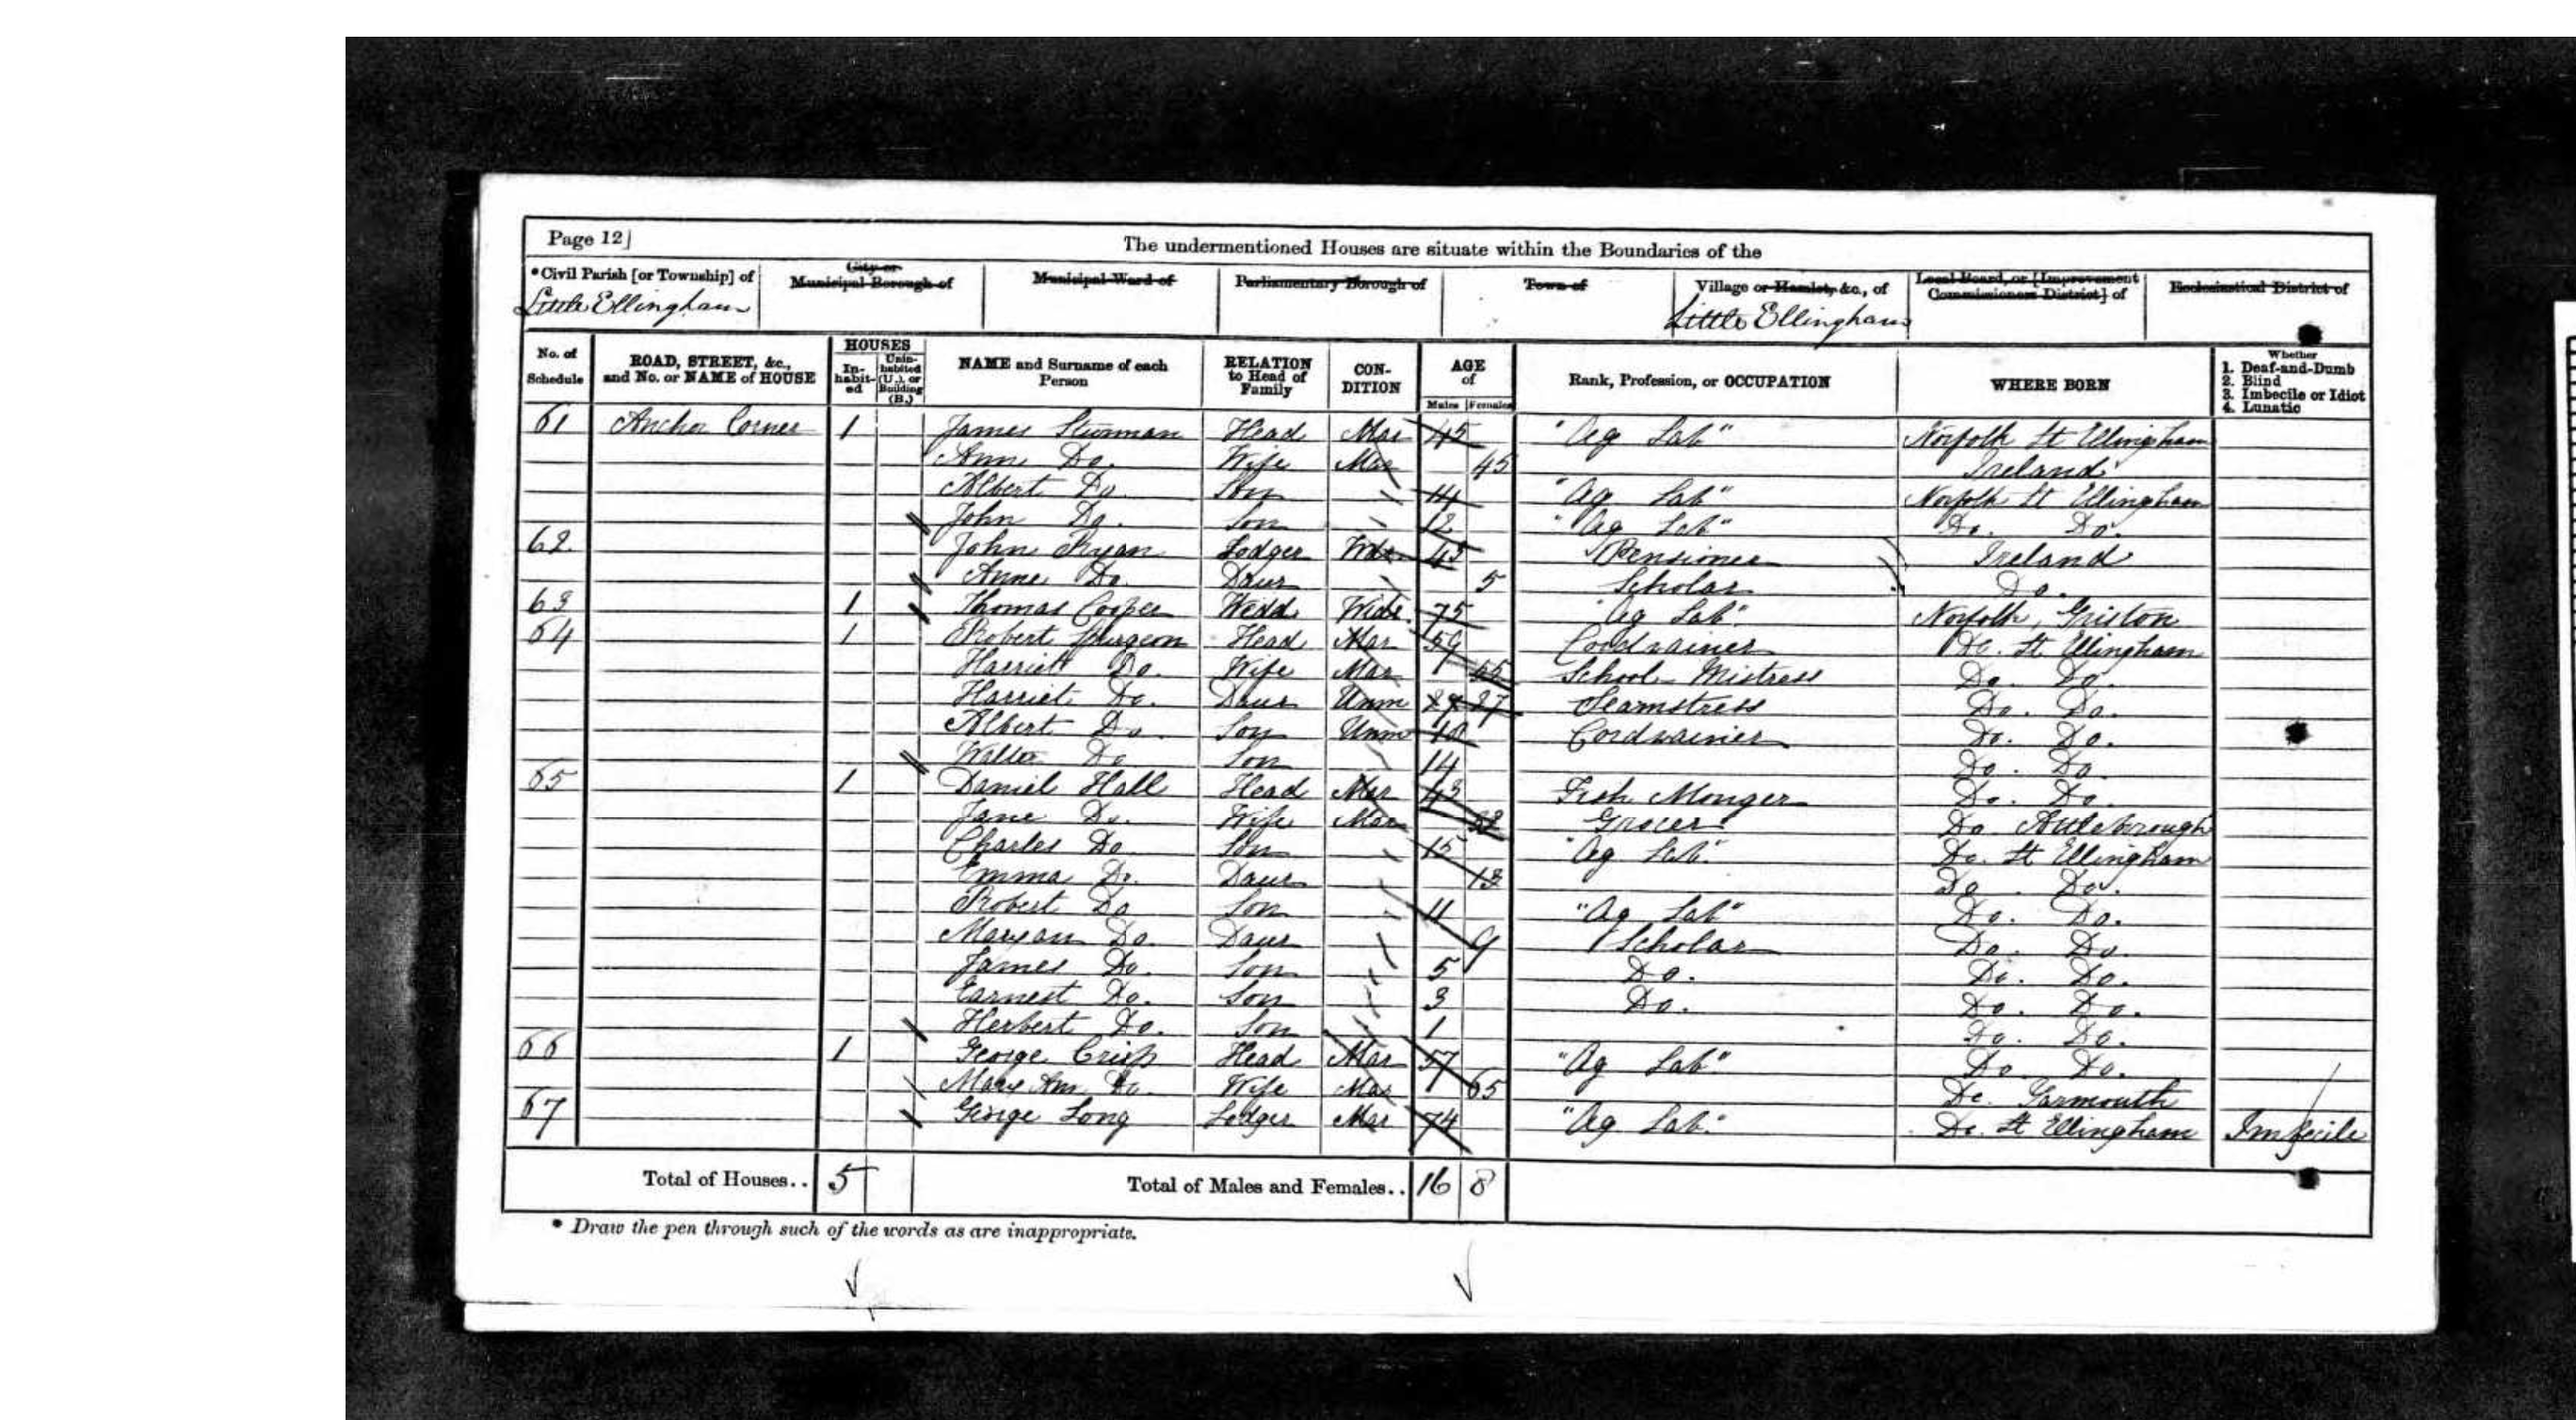 Page 12]
The undermentioned Houses are situate within the Boundaries of the
*Civil Parish [or Township] of City or Municipal Borough of Municipal Ward of Parliamentary Borough of Town of Village or Hamlet, &c., of Local Board, or [Improvement Commissioners District] of Ecclesiastical District of
Little Ellingham Little Ellingham
No. of Schedule ROAD, STREET, &c., and No. or NAME of HOUSE HOUSES In-habit-ed Unin-habited (U.), or Building (B.) NAME and Surname of each Person RELATION to Head of Family CON-DITION AGE of Males Females Rank, Profession, or OCCUPATION WHERE BORN Whether 1. Deaf-and-Dumb 2. Blind 3. Imbecile or Idiot 4. Lunatic
61 Anchor Corner 1 James Sturman Head Mar 45 "Ag Lab" Norfolk Lt Ellingham
Ann Do. Wife Mar 45 Ireland
Albert Do Son 14 "Ag Lab" Norfolk Lt Ellingham
John Do. Son 12 "Ag Lab" Do. Do.
62 John Ryan Lodger Wdr 45 Pensioner Ireland
Anne Do. Daur 5 Scholar Do.
63 1 Thomas Cooper Widr. 75 "Ag Lab". Norfolk, Griston
64 1 Robert Spurgeon Head Mar 59 Cordwainer Do. Lt Ellingham
Harriett Do. Wife Mar 55 School Mistress Do. Do.
Harriet Do. Daur Unm 27 Seamstress Do. Do.
Albert Do. Son Unm 18 Cordwainer Do. Do.
Walter Do Son 14 Do. Do.
65 1 Daniel Hall Head Mar 43 Fish Monger Do. Do.
Jane Do. Wife Mar Grocer Do Attleborough
Charles Do. Son 15 "Ag Lab". Do. Lt Ellingham
Emma Do. Daur 13 Do. Do.
Robert Do Son 11 "Ag Lab" Do. Do.
Maryan Do. Daur 9 Scholar Do. Do.
James Do. Son 5 Do. Do. Do.
Earnest Do. Son 3 Do. Do. Do.
Herbert Do. Son 1 Do. Do.
66 1 George Crisp Head Mar 57 "Ag Lab" Do. Do.
Mary Ann Do. Wife Mar 65 Do. Yarmouth
67 George Long Lodger Mar 74 "Ag Lab." Do. Lt Ellingham Imbecile
Total of Houses.. 5 Total of Males and Females.. 16 8
* Draw the pen through such of the words as are inappropriate.